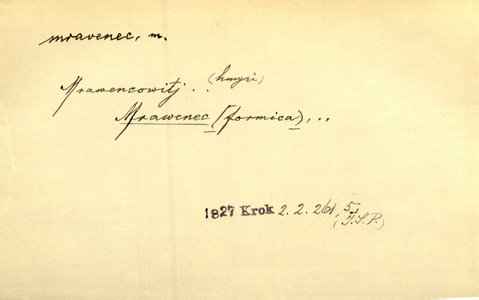 mravenec, m.
(hmyzi)
Mrawencowitj ..
Mrawenec (formica), ..
1827 Krok 2. 2. 261, 5.
(J.S.P.)